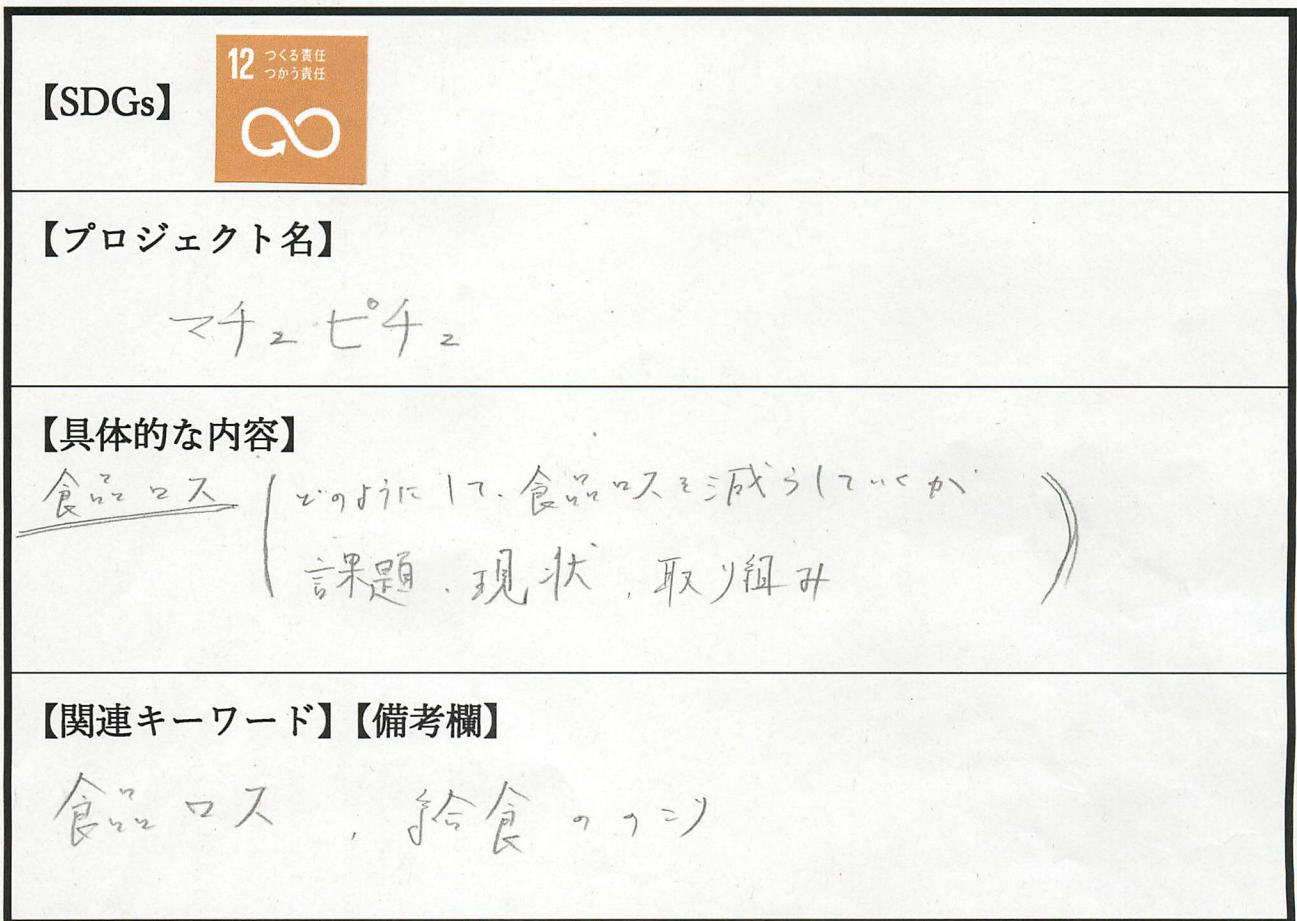 【SDGs】
12 つくる責任
つかう責任
【プロジェクト名】
マチュピチュ
【具体的な内容】
食品ロス(どのようにして、食品ロスを減らしていくか
課題、現状、取り組み)
【関連キーワード】【備考欄】
食品ロス、給食ののこり